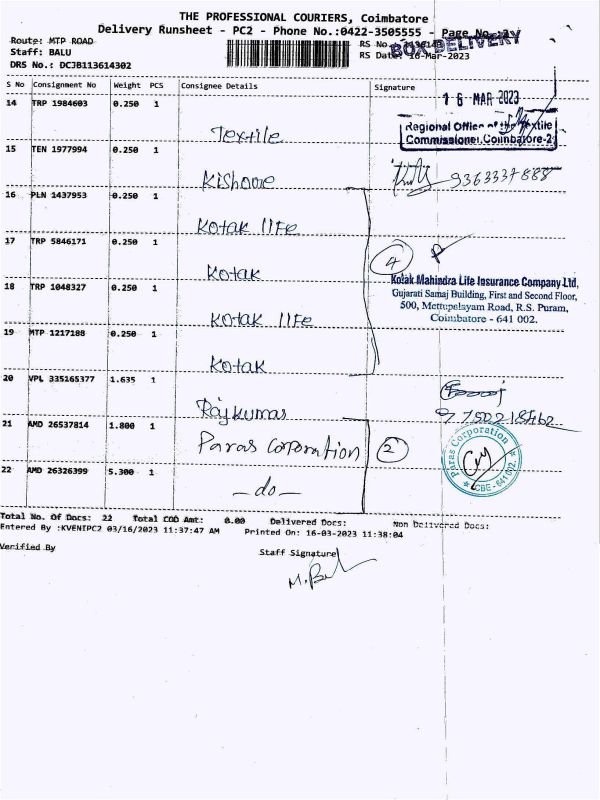 THE PROFESSIONAL COURIERS, Coimbatore
Delivery Runsheet - PC2 - Phone No.:0422-3505555 - Page No.:
Route: MTP ROAD
RS No.
BOX DELIVERY
Staff: BALU
RS Date: 16-Mar-2023
DRS No.: DCJB113614302
S No Consignment No Weight PCS Consignee Details Signature
16 MAR 2023
14 TRP 1984603 0.250 1 Textile
Regional Office of the Textile
Commissioner, Coimbatore-2
15 TEN 1977994 0.250 1 Kishore
9363337888
16 PLN 1437953 0.250 1 Kotak life
17 TRP 5846171 0.250 1 Kotak
4
Kotak Mahindra Life Insurance Company Ltd,
Gujarati Samaj Building, First and Second Floor,
500, Mettupalayam Road, R.S. Puram,
Coimbatore - 641 002.
18 TRP 1048327 0.250 1 Kotak life
19 MTP 1217188 0.250 1 Kotak
20 VPL 335165377 1.635 1 Rajkumar
21 AMD 26537814 1.800 1 Paras Corporation
2
Paras Corporation
CBE - 641 002.
22 AMD 26326399 5.300 1 - do -
Total No. Of Docs: 22 Total COD Amt: 0.00 Delivered Docs: Non Delivered Docs:
Entered By :KVENIPC2 03/16/2023 11:37:47 AM Printed On: 16-03-2023 11:38:04
Verified By
Staff Signature